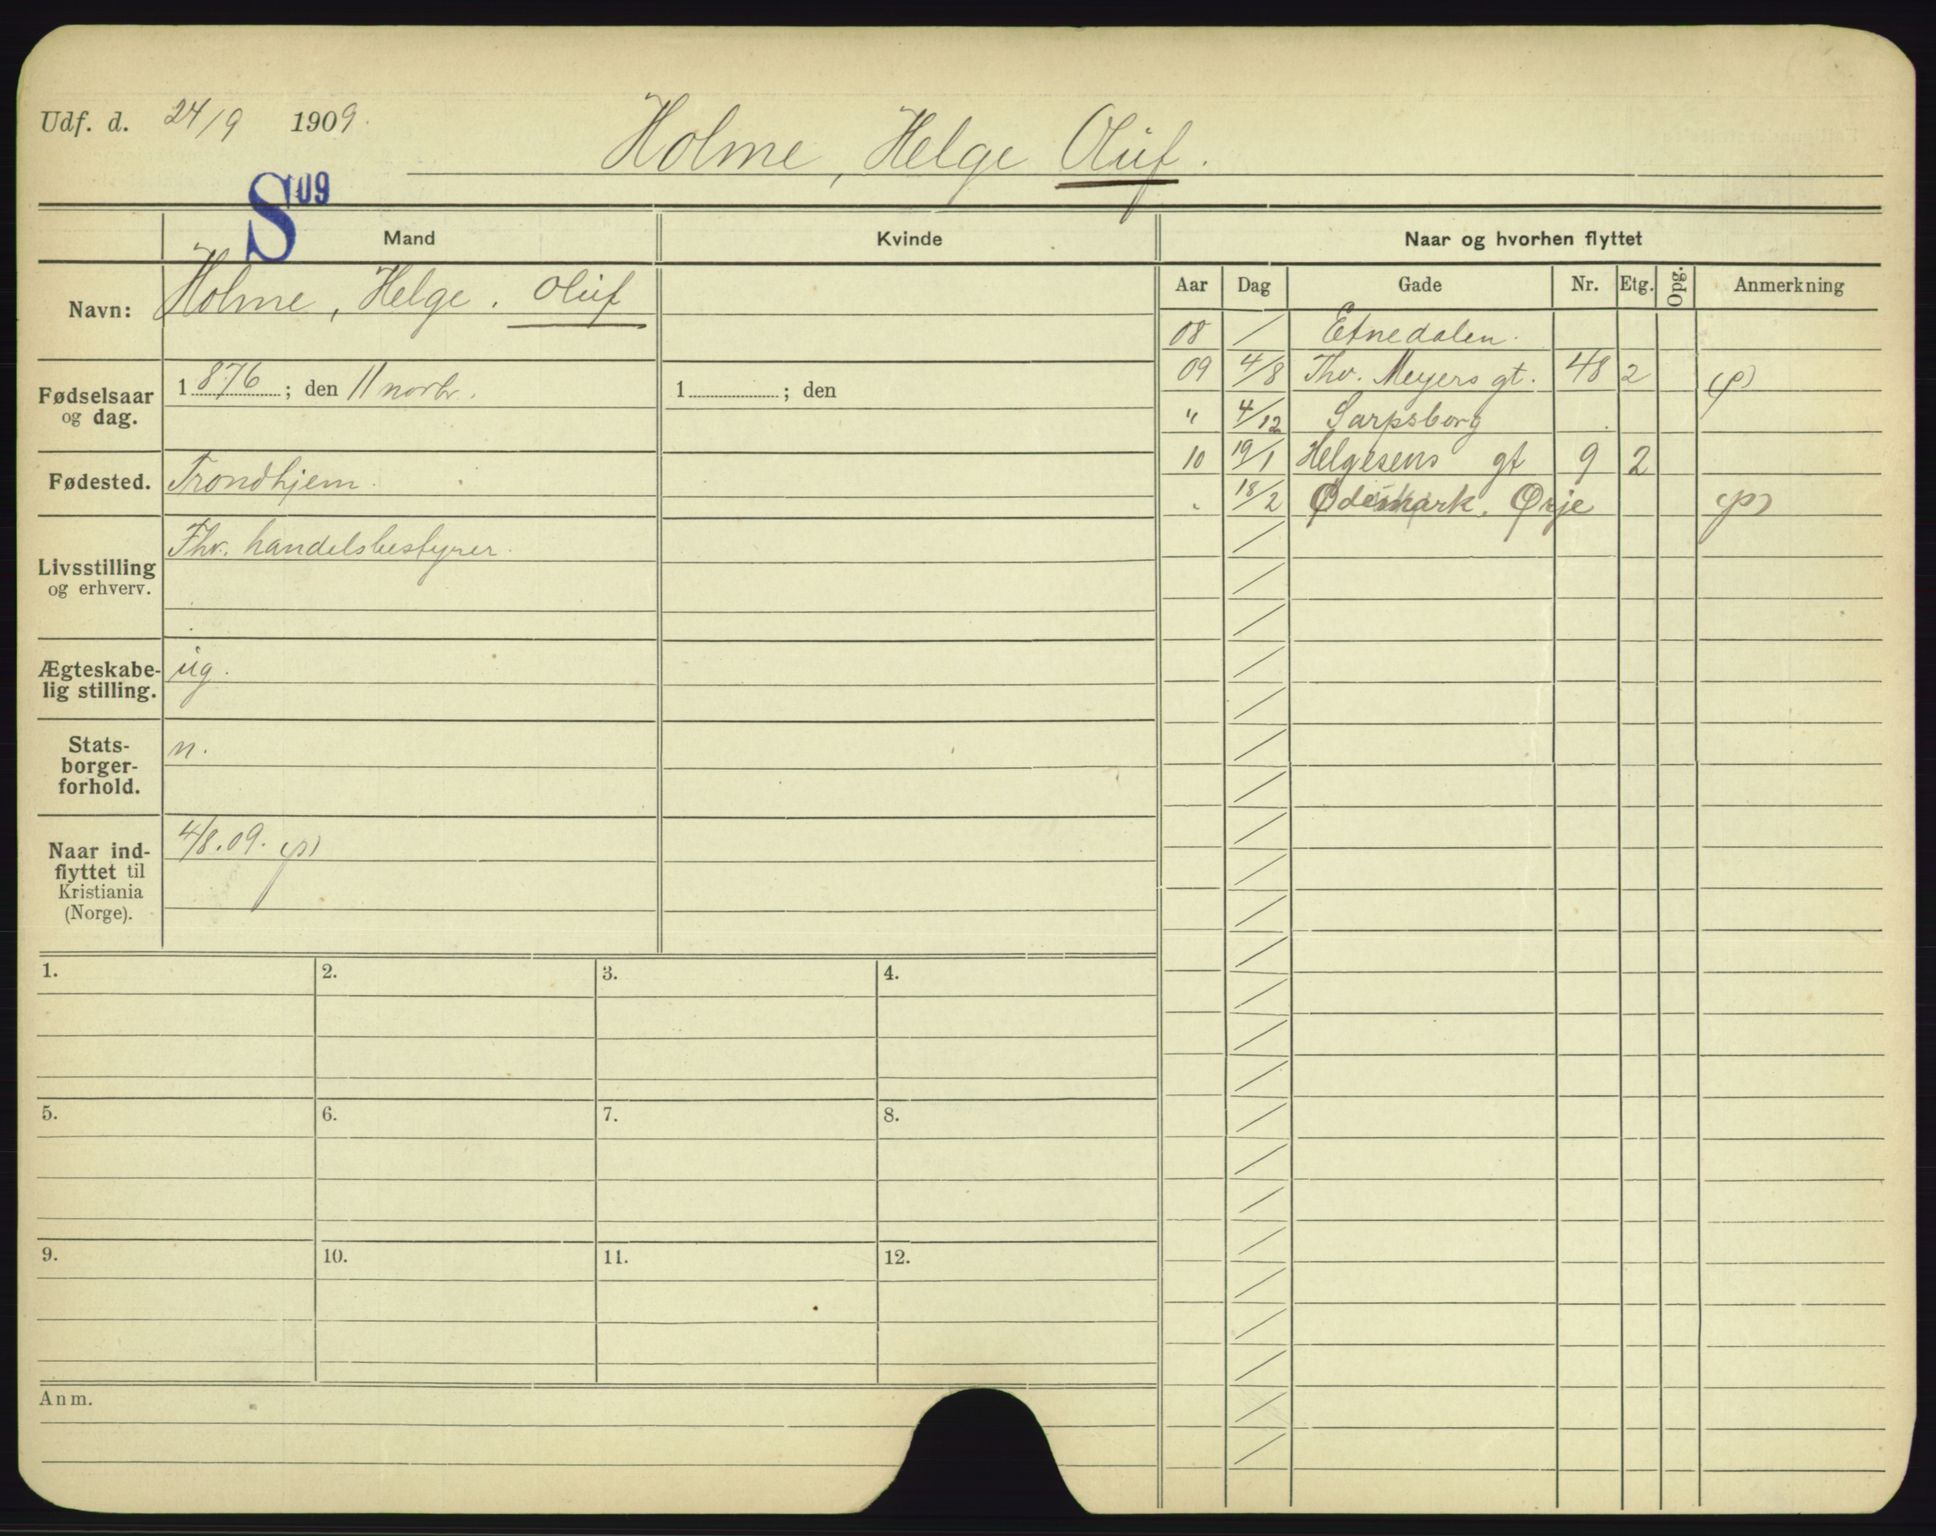 Udf. d. 24/9 1909.
Holme, Helge Oluf.
S 09
Mand
Kvinde
Naar og hvorhen flyttet
Navn:
Holme, Helge. Oluf
Fødselsaar og dag.
1876; den 11 novbr.
1 ; den
Fødested.
Trondhjem.
Livsstilling og erhverv.
Fhv. handelsbestyrer.
Ægteskabe-
lig stilling.
ug.
Stats-
borger-
forhold.
n.
Naar ind-
flyttet til
Kristiania
(Norge).
4/8.09. (p)
Aar Dag Gade Nr. Etg. Opg. Anmerkning
08 / Etnedalen.
09 4/8 Thv. Meyers gt. 48 2 (p)
" 4/12 Sarpsborg
10 19/1 Helgesens gt 9 2
" 18/2 Ødemark. Ørje (p)
1. 2. 3. 4.
5. 6. 7. 8.
9. 10. 11. 12.
Anm.